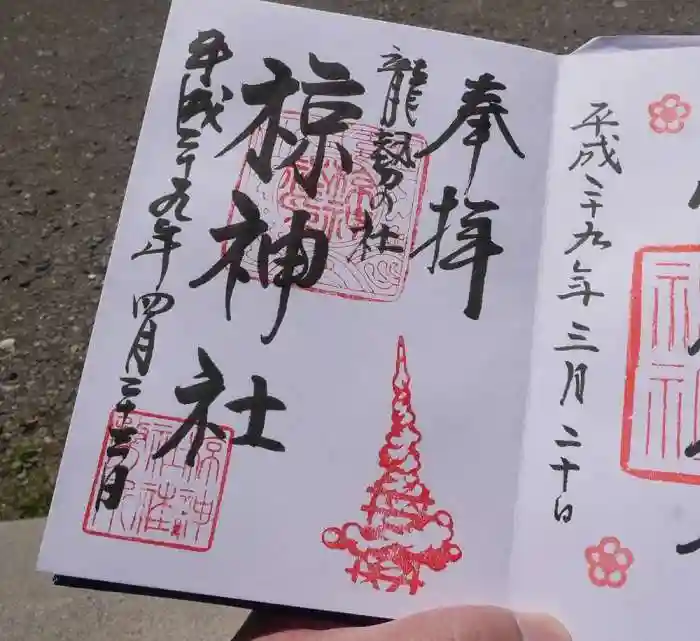 平成二十九年三月二十日
奉拝
龍勢の社
椋神社
平成二十九年四月二十二日